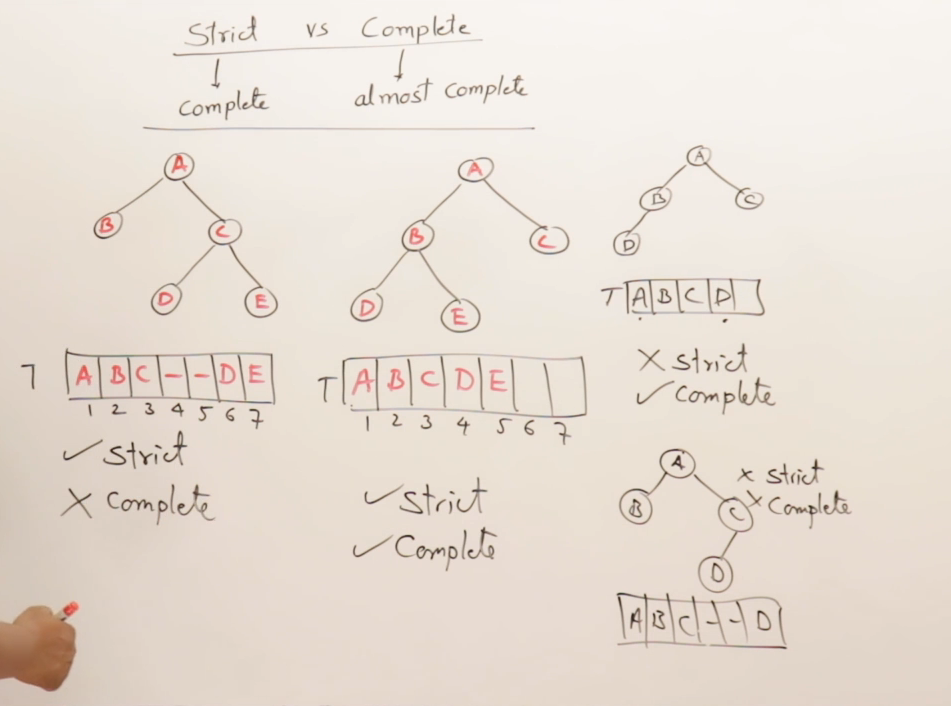 Strict vs Complete
↓ ↓
Complete almost complete
A
B C
D E
T A B C - - D E
1 2 3 4 5 6 7
✓ Strict
X Complete
A
B C
D E
T A B C D E
1 2 3 4 5 6 7
✓ Strict
✓ Complete
A
B C
D
T A B C D
X Strict
✓ Complete
A
B C
D
x Strict
x Complete
A B C - - D